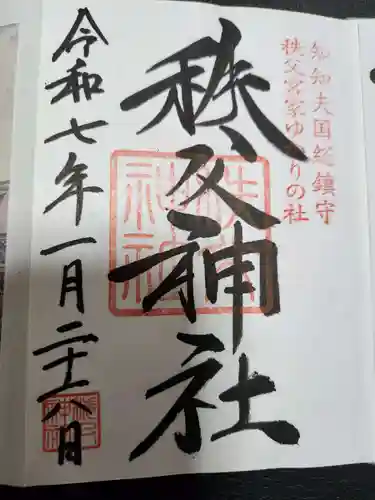 知知夫国総鎮守
秩父宮家ゆかりの社
秩父神社
秩父神社
令和七年一月二十六日